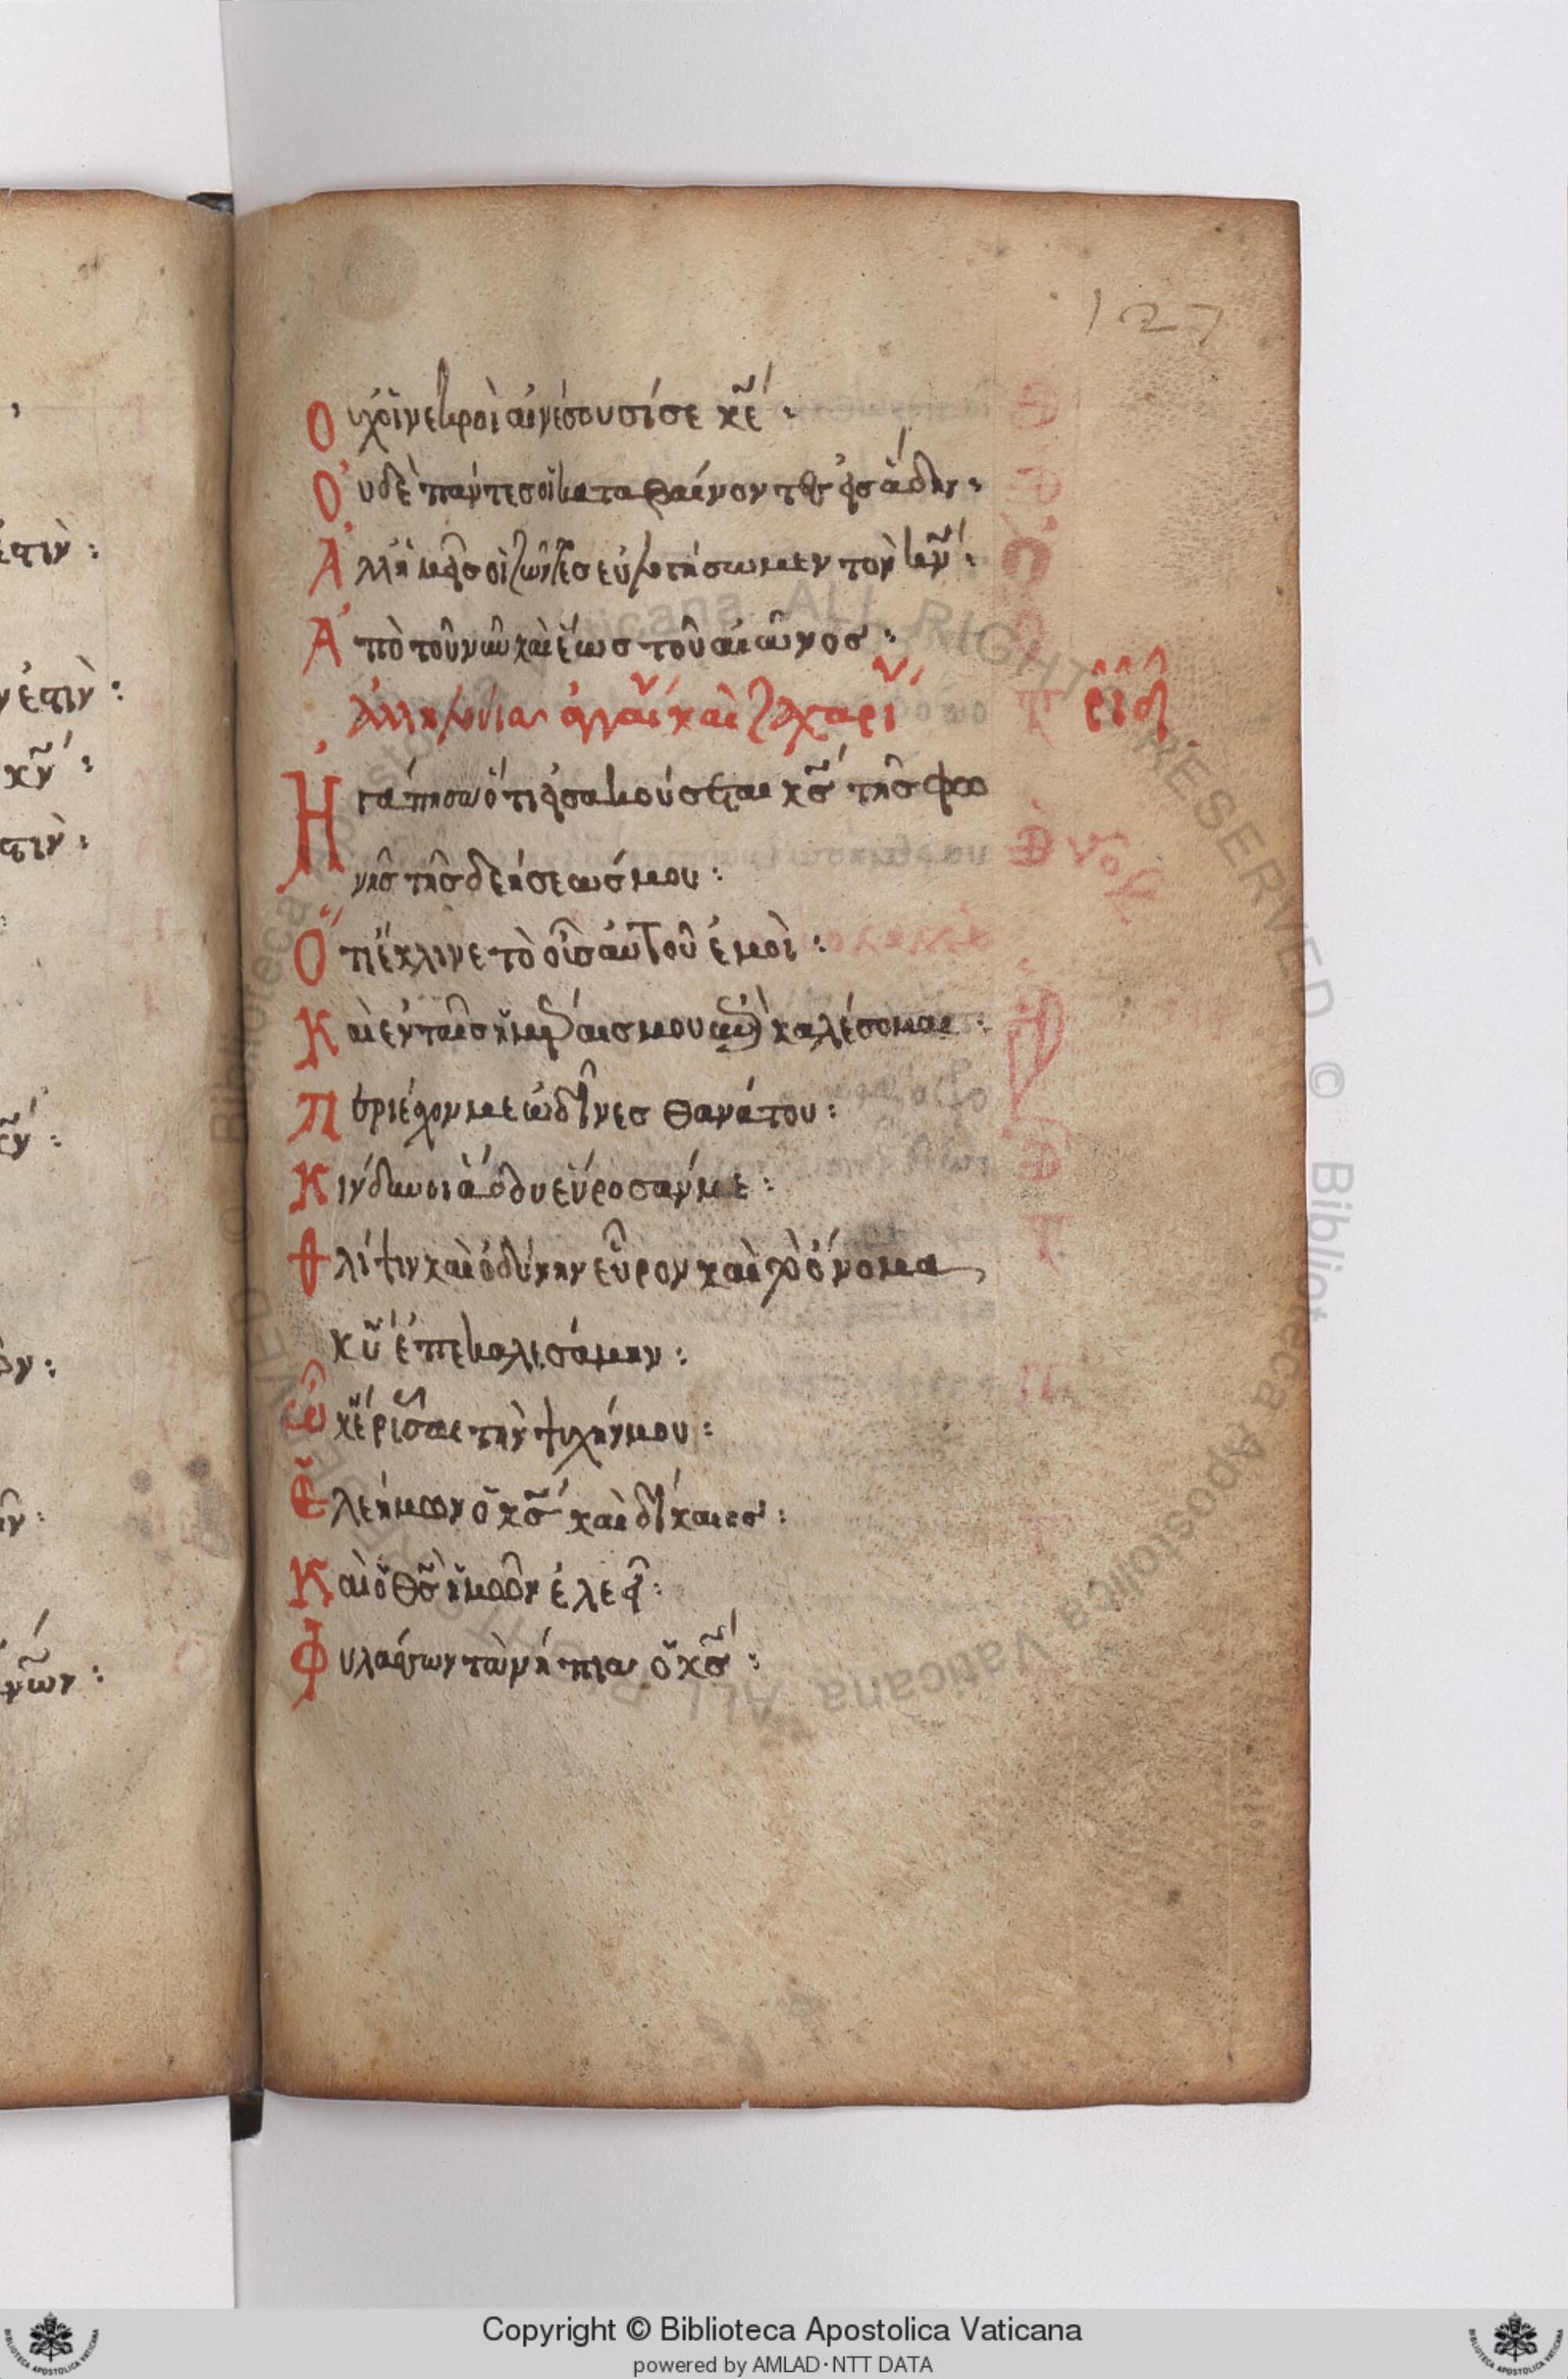 127
Οὐχ οἱ νεκροὶ αἰνέσουσί σε κ̅ε̅:
Οὐδὲ πάντες οἱ καταβαίνοντες εἰς ἅδην:
Ἀλλ' ἡμεῖς οἱ ζῶντες εὐλογήσωμεν τὸν κ̅ν̅:
Ἀπὸ τοῦ νῦν καὶ ἕως τοῦ αἰῶνος:
Ἀλληλούια ἀγγαί καὶ ζαχαρί ρ̅ι̅δ̅
Ἠγάπησα ὅτι εἰσακούσεται κ̅ς̅ τῆς φω
νῆς τῆς δεήσεώς μου:
Ὅτι ἔκλινε τὸ οὖς αὐτοῦ ἐμοὶ:
Καὶ ἐν ταῖς ἡμέραις μου ἐπικαλέσομαι:
Περιέσχον με ὠδῖνες θανάτου:
Κίνδυνοι ἅδου εὕροσάν με:
Θλίψιν καὶ ὀδύνην εὗρον καὶ τὸ ὄνομα
κ̅υ̅ ἐπεκαλεσάμην:
Ὦ κ̅ε̅ ῥῦσαι τὴν ψυχήν μου:
Ἐλεήμων ὁ κ̅ς̅ καὶ δίκαιος:
Καὶ ὁ θ̅ς̅ ἡμῶν ἐλεεῖ:
Φυλάσσων τὰ νήπια ὁ κ̅ς̅:
Copyright © Biblioteca Apostolica Vaticana
powered by AMLAD·NTT DATA